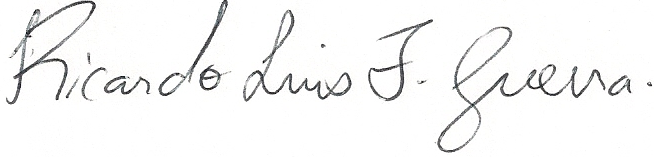 Ricardo Luis F. Guerra.